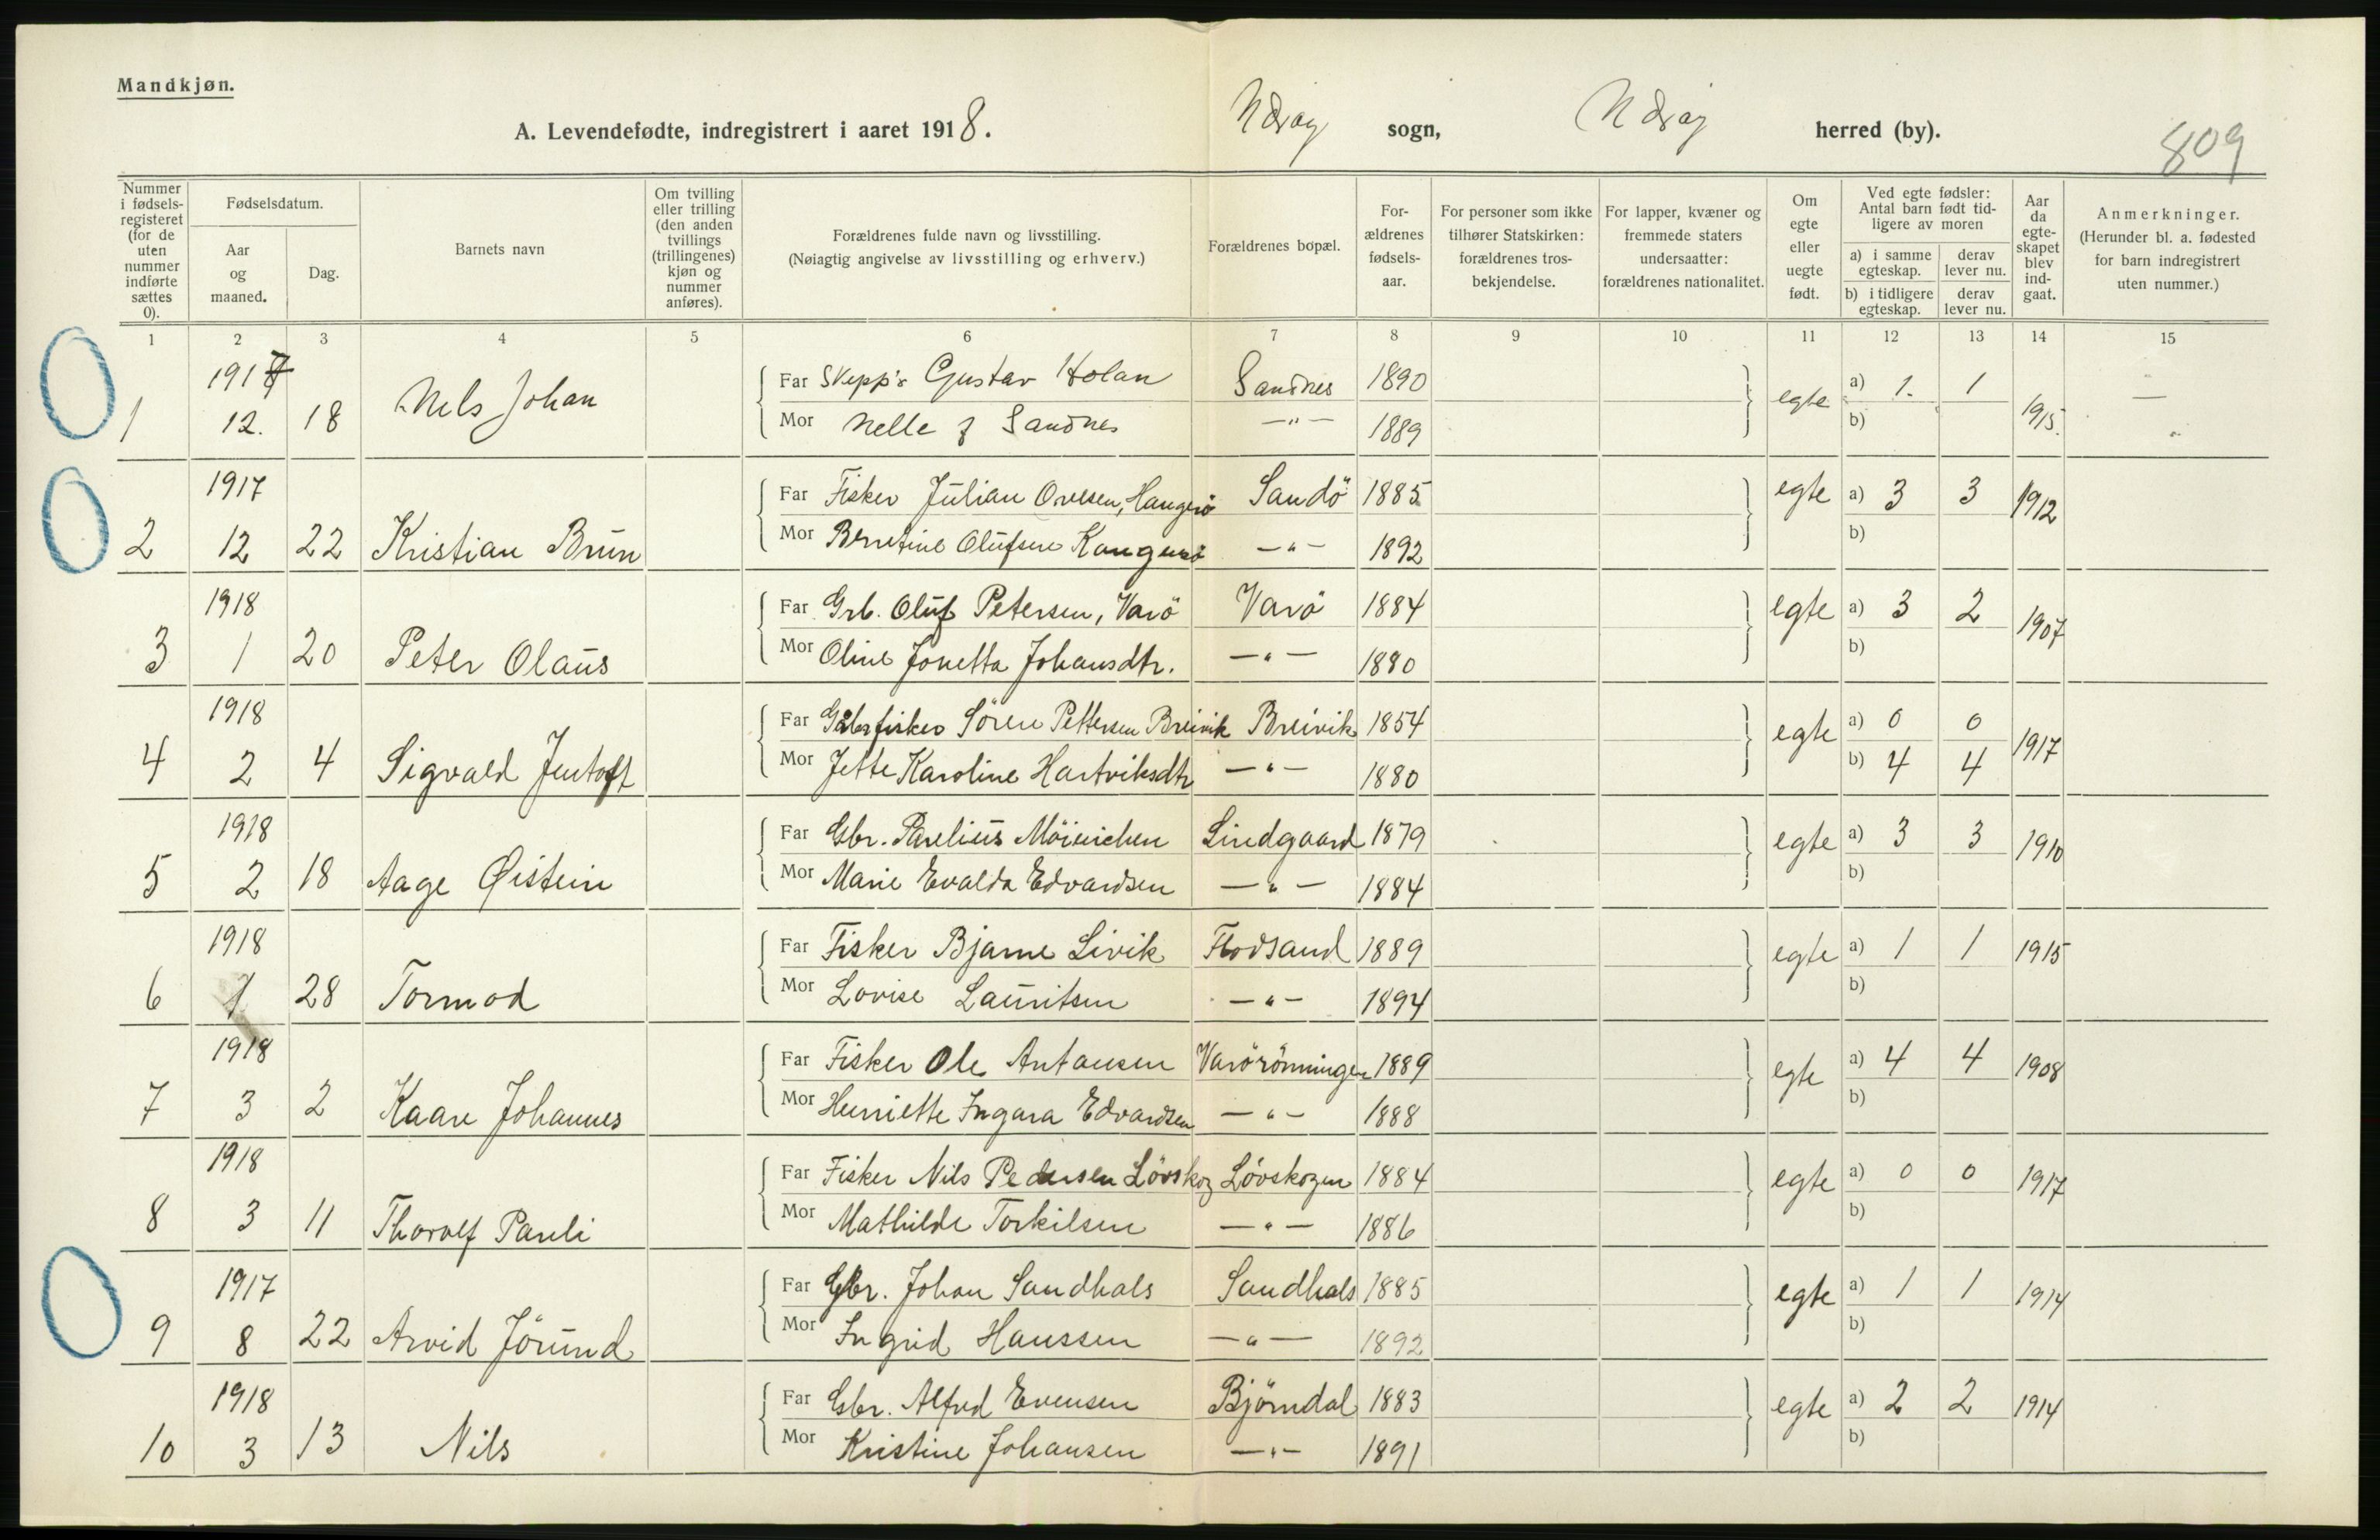 Mandkjøn.
A. Levendefødte, indregistrert i aaret 1918. Nærøy sogn, Nærøy herred (by).
809
Nummer i fødsels-registeret (for de uten nummer indførte sættes 0).
Fødselsdatum.
Aar og maaned.
Dag.
Barnets navn
Om tvilling eller trilling (den anden tvillings (trillingenes) kjøn og nummer anføres).
Forældrenes fulde navn og livsstilling.
(Nøiagtig angivelse av livsstilling og erhverv.)
Forældrenes bopæl.
For-ældrenes fødsels-aar.
For personer som ikke tilhører Statskirken: forældrenes tros-bekjendelse.
For lapper, kvæner og fremmede staters undersaatter: forældrenes nationalitet.
Om egte eller uegte født.
Ved egte fødsler: Antal barn født tid-ligere av moren
a) i samme egteskap. derav lever nu.
b) i tidligere egteskap. derav lever nu.
Aar da egte-skapet blev ind-gaat.
Anmerkninger.
(Herunder bl. a. fødested for barn indregistrert uten nummer.)
1 2 3 4 5 6 7 8 9 10 11 12 13 14 15
1917 Far Gustav Holan Sandnes 1890 egte a) 1. 1 1915.
1 12. 18 Nels Johan Mor Nelle f Sandnes —"— 1889 b)
1917 Far Fisker Julian Ovesen, Hangerö Sandö 1885 egte a) 3 3 1912
2 12 22 Kristian Brun Mor Berntine Olufsen —"— 1892 b)
1918 Far Grb. Oluf Petersen, Varö Varö 1884 egte a) 3 2 1907
3 1 20 Peter Olaus Mor Oline Jonetta Johansdtr. —"— 1880 b)
1918 Far Sören Pettersen Breivik Breivik 1854 egte a) 0 0 1917
4 2 4 Sigvald Jentoft Mor Jette Karoline Hartviksdtr —"— 1880 b) 4 4
1918 Far Gbr. Parelius Möinichen Lindgaard 1879 egte a) 3 3 1910
5 2 18 Aage Øistein Mor Marie Evalda Edvardsen —"— 1884 b)
1918 Far Fisker Bjarne Livik Flodsand 1889 egte a) 1 1 1915
6 1 28 Tormod Mor Lovise Lauritsen —"— 1894 b)
1918 Far Fisker Ole Antonsen Varörönningen 1889 egte a) 4 4 1908
7 3 2 Kaare Johannes Mor Henriette Ingara Edvardsen —"— 1888 b)
1918 Far Fisker Nils Pedersen Lövskog Lövskogen 1884 egte a) 0 0 1917
8 3 11 Thoralf Pauli Mor Mathilde Torkilsen —"— 1886 b)
1917 Far Gbr. Johan Sandhals Sandhals 1885 egte a) 1 1 1914
9 8 22 Arvid Jörund Mor Ingrid Hanssen —"— 1892 b)
1918 Far Gbr. Alfred Evensen Björndal 1883 egte a) 2 2 1914
10 3 13 Nils Mor Kristine Johansen —"— 1891 b)